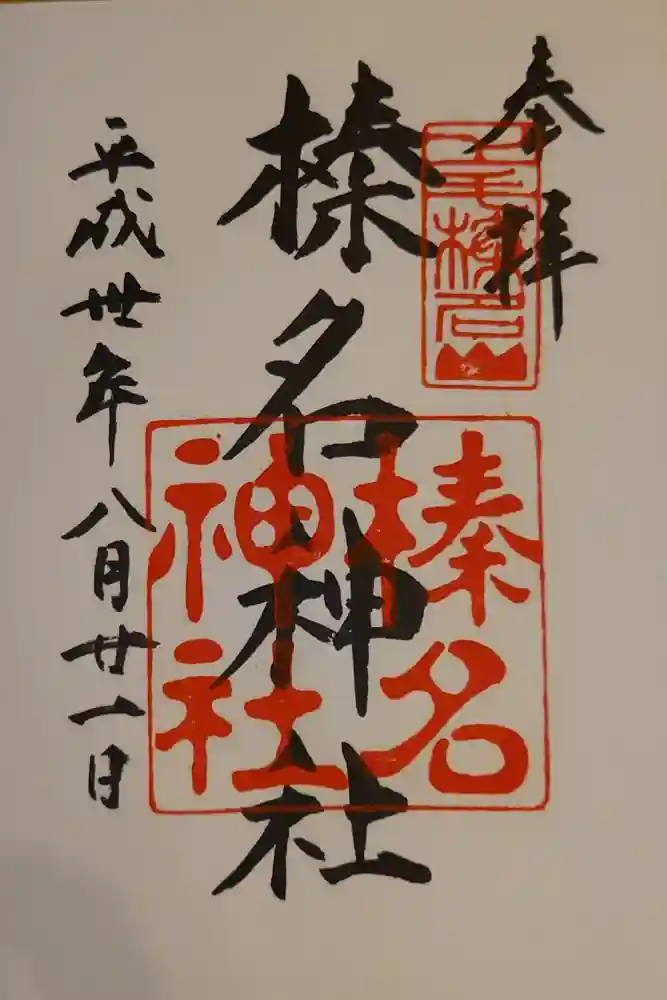 奉拝
榛名神社
平成卅年八月廿一日
榛名
神社